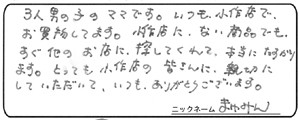 3人男の子のママです。いつも、小作店で、
お買物してます。小作店に、ない商品でも、
すぐ他のお店に、探してくれて、本当にたすかり
ます。とっても小作店の皆さんに、親切に
していただいて、いつも、ありがとうございます。
ニックネーム まゆみん